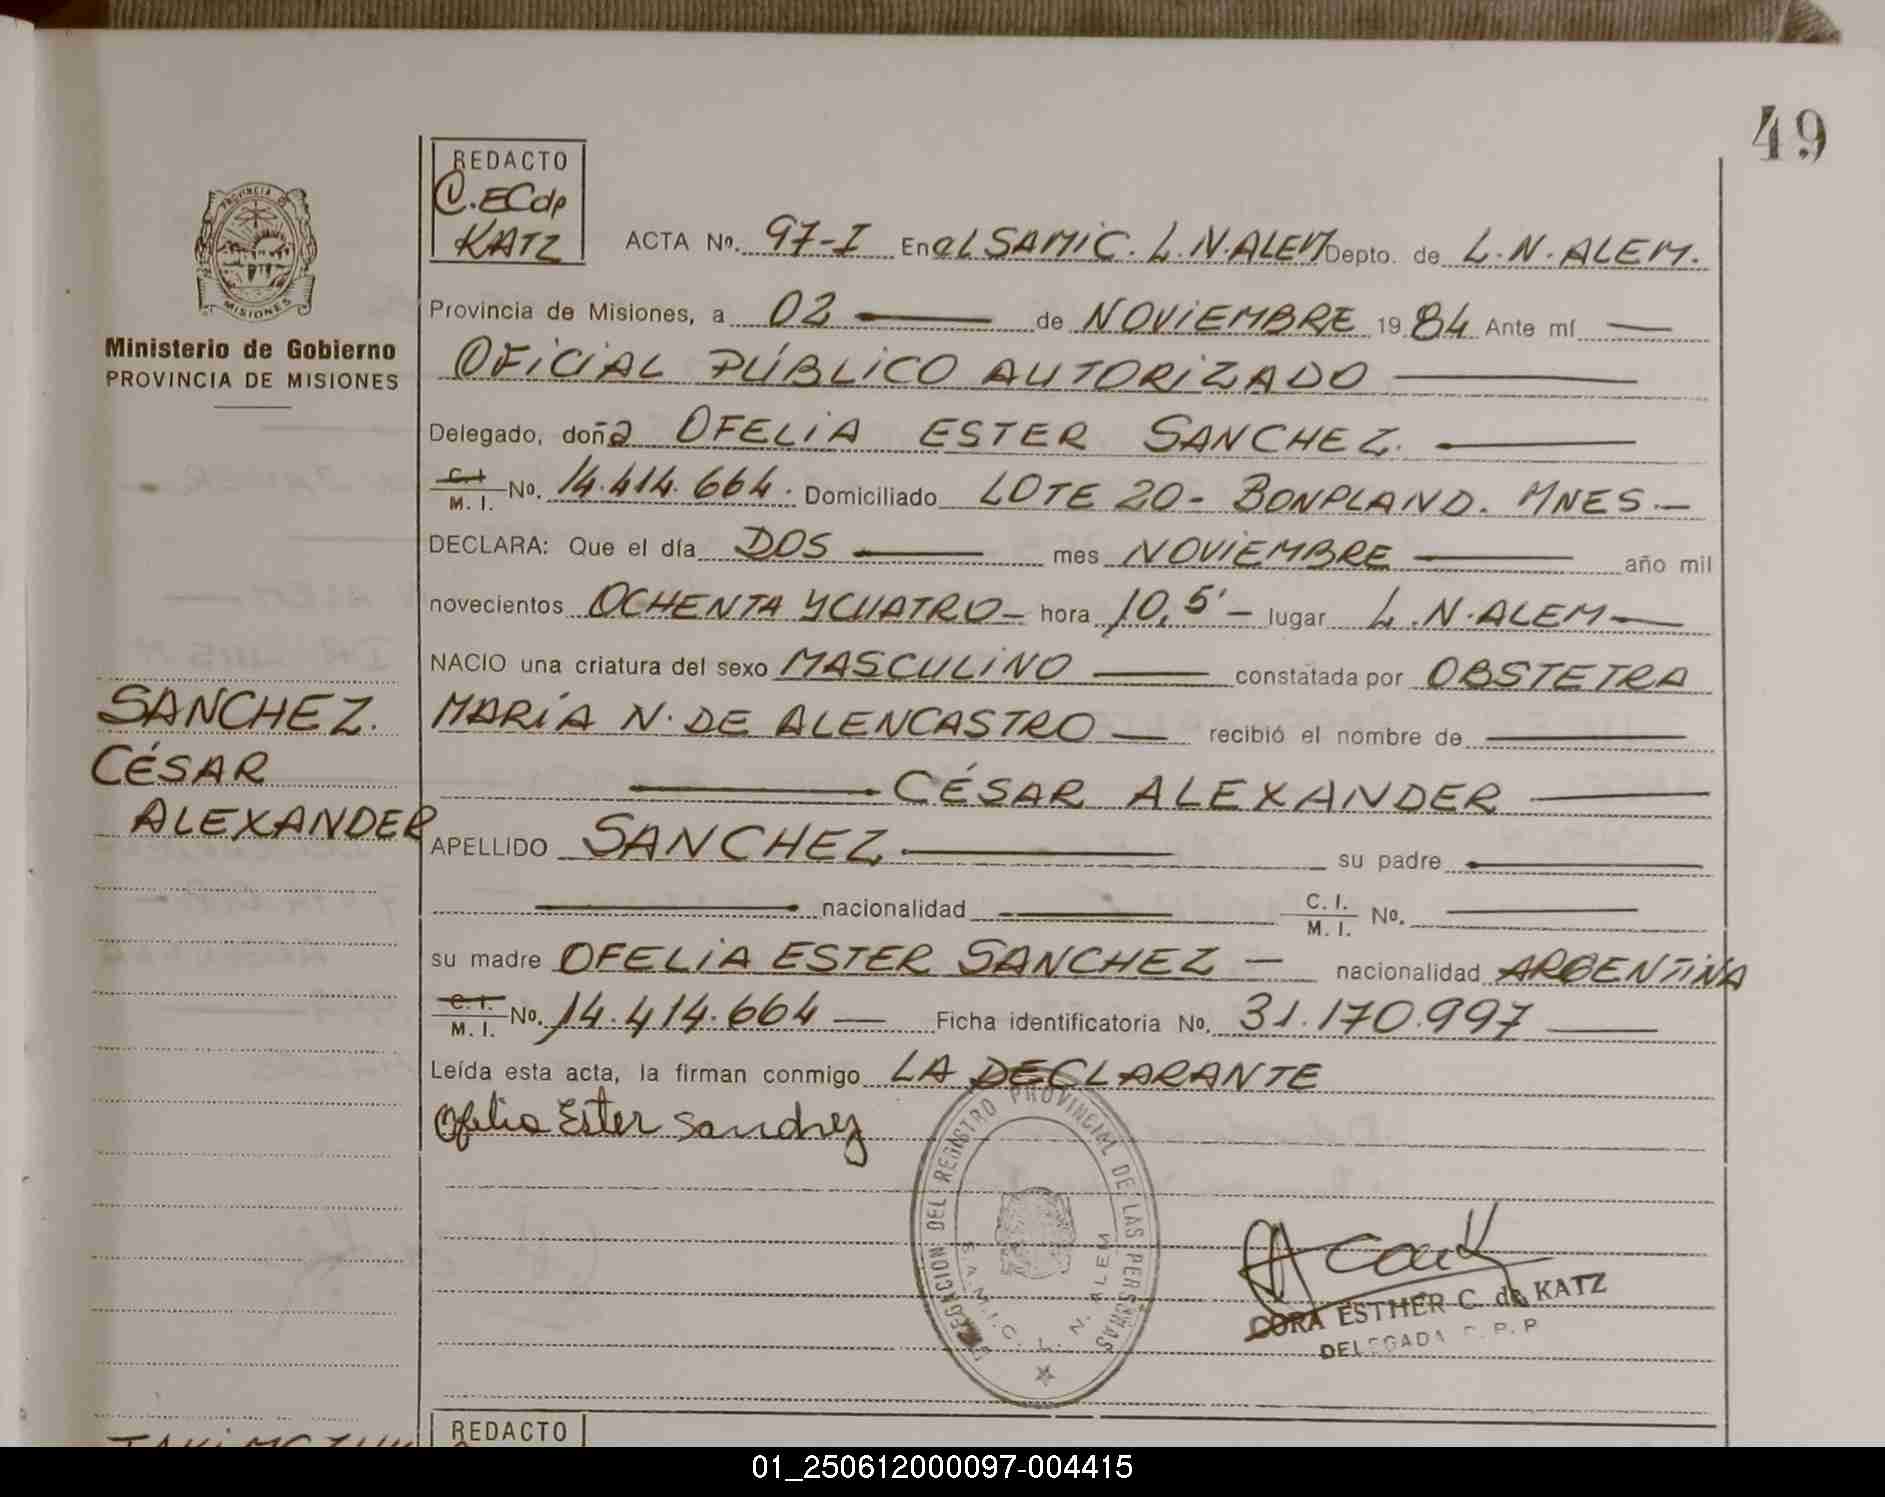 49
REDACTO
C. ECdp
KATZ
PROVINCIA DE
MISIONES
Ministerio de Gobierno
PROVINCIA DE MISIONES
ACTA Nº. 97-I En el SAMIC. L.N.ALEM Depto. de L.N.ALEM.
Provincia de Misiones, a 02 — de NOVIEMBRE 1984 Ante mí —
OFICIAL PÚBLICO AUTORIZADO —
Delegado, doña OFELIA ESTER SANCHEZ. —
C.I. M.I. Nº. 14.414.664. Domiciliado LOTE 20 - BONPLAND. MNES.—
DECLARA: Que el día DOS — mes NOVIEMBRE — año mil
novecientos OCHENTA Y CUATRO — hora 10,5' — lugar L.N.ALEM —
NACIO una criatura del sexo MASCULINO — constatada por OBSTETRA
MARÍA N. DE ALENCASTRO — recibió el nombre de —
— CÉSAR ALEXANDER —
APELLIDO SANCHEZ — su padre —
— nacionalidad — C.I. M.I. Nº. —
su madre OFELIA ESTER SANCHEZ — nacionalidad ARGENTINA
C.I. M.I. Nº. 14.414.664 — Ficha identificatoria Nº. 31.170.997 —
Leída esta acta, la firman conmigo LA DECLARANTE
Ofelia Ester Sanchez
SANCHEZ.
CÉSAR
ALEXANDER
DELEGACION DEL REGISTRO PROVINCIAL DE LAS PERSONAS
S.A.M.I.C. L. N. ALEM
CORA ESTHER C. de KATZ
DELEGADA R. P. P.
REDACTO
01_250612000097-004415